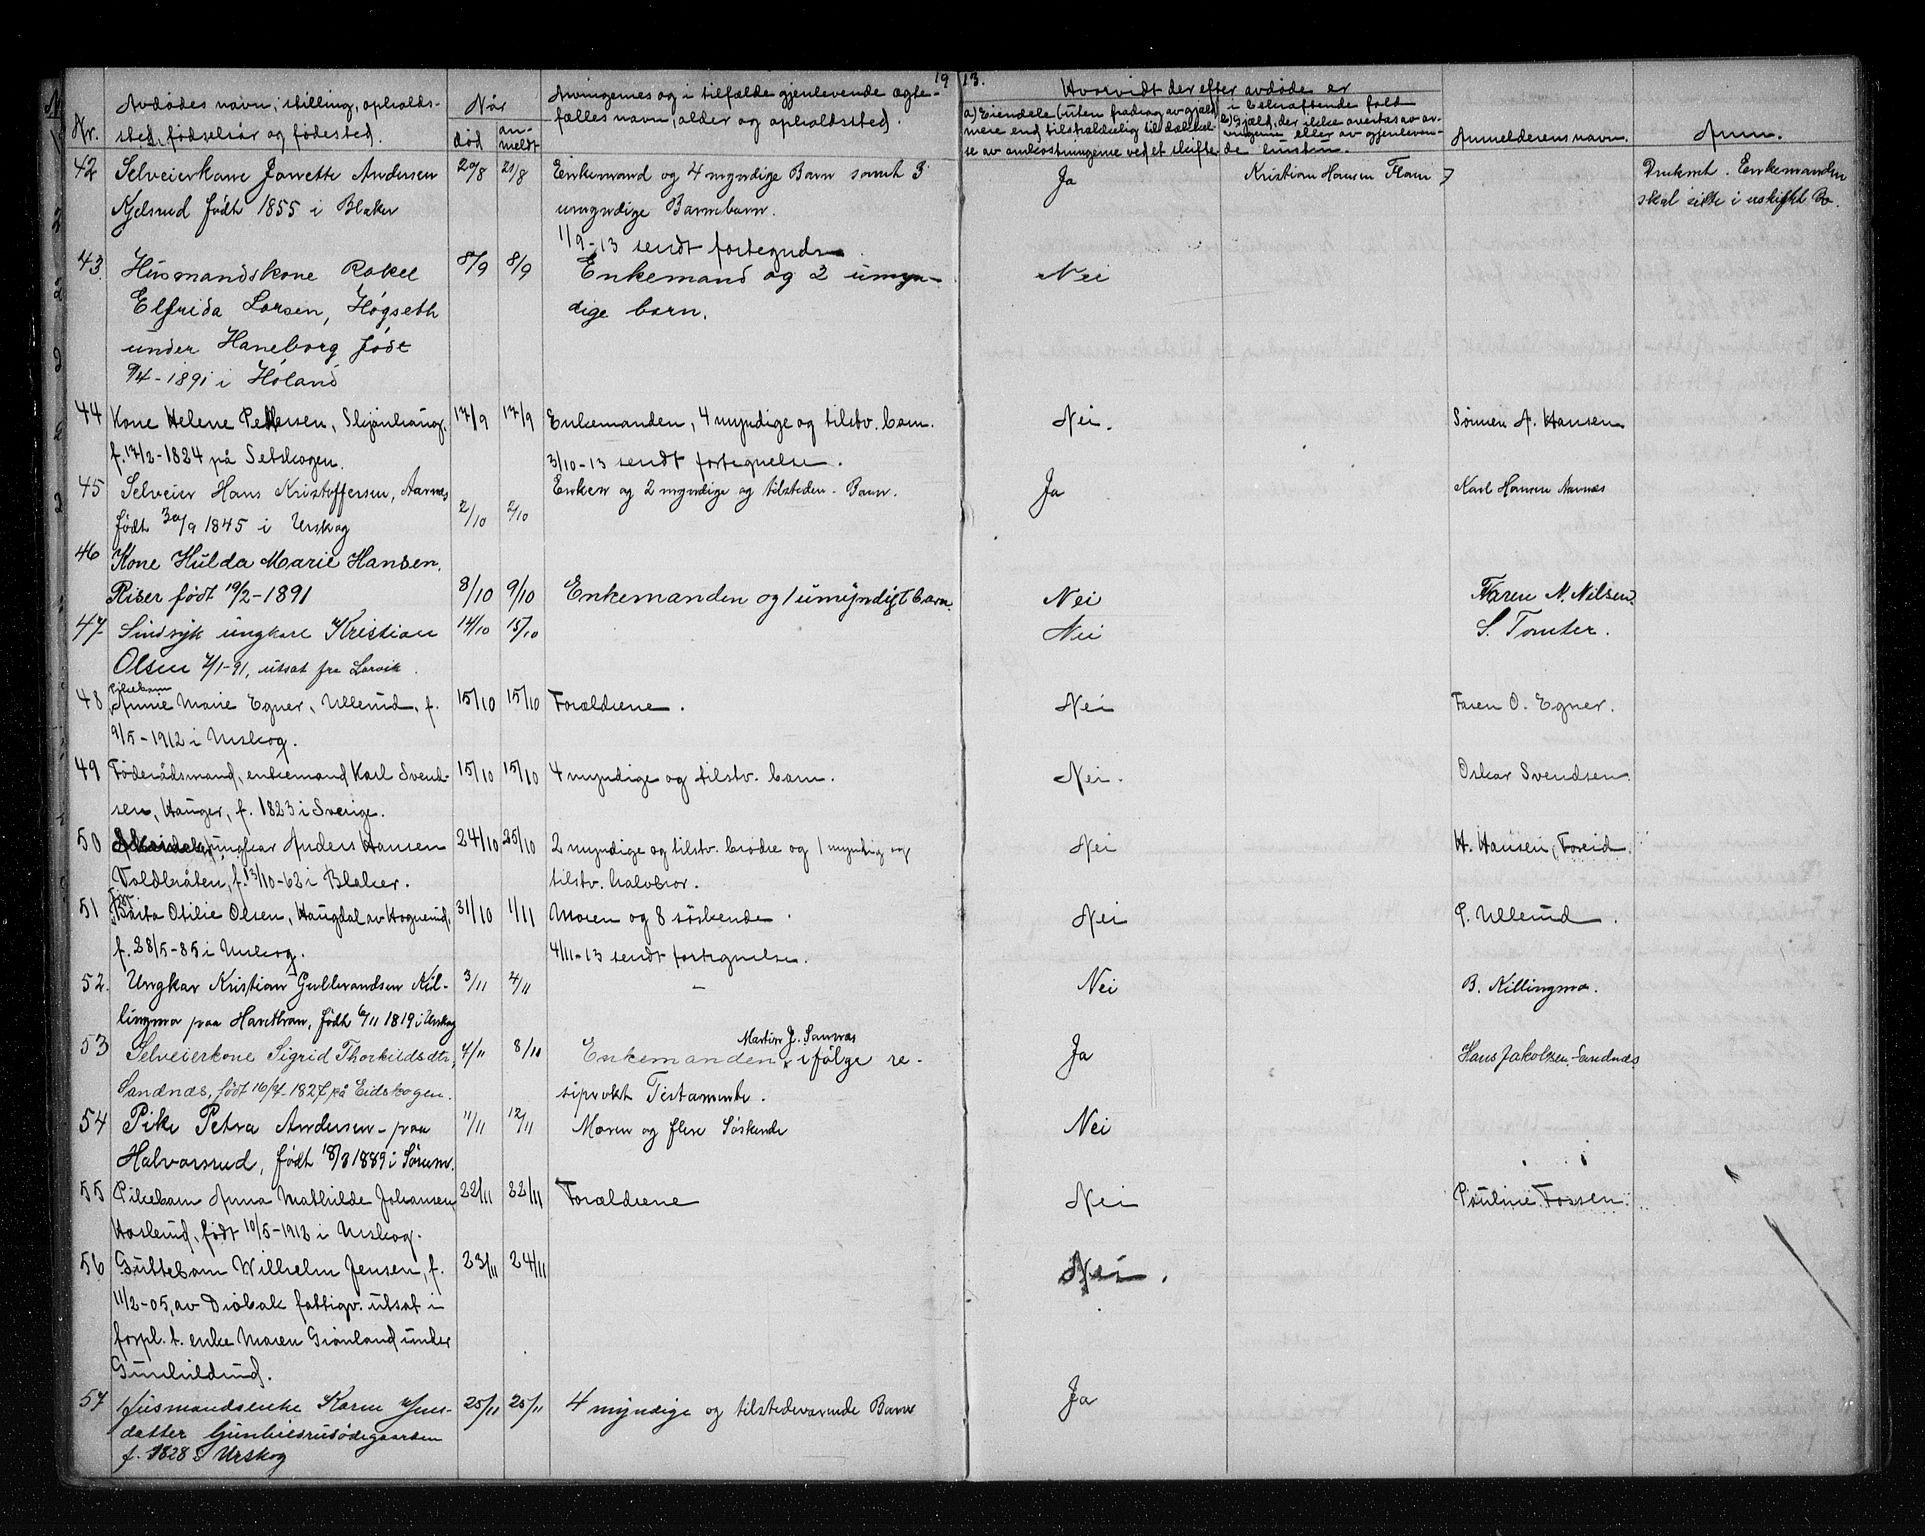 1913.
Nr.
Avdødes navn, stilling, opholds-
sted, fødselsår og fødested.
Når
død
an-
meldt
Arvingernes og i tilfælde gjenlevende ægte-
fælles navn, alder og opholdssted.
Hvorvidt der efter avdøde er
a) Eiendele (uten fradrag av gjæld) i
mere end tilstrækkelig til dækkel-
se av omkostningerne ved et skifte
bekræftende fald
b) Gjæld, der ikke overtas av ar-
vingerne eller av gjenleven-
de
Anmelderens navn.
Anm.
42 Selveierkone Janette Andersen 20/8 21/8 Enkemand og 4 myndige Barn samt 3 Ja Kristian Hansen Enkemanden
Kjelsrud født 1855 i Blaker umyndige Barnebarn. skal sitte i uskiftet Bo.
1/9-13 sendt
43. Husmandskone Rakel 8/9 8/9 Enkemand og 2 umyn- Nei
Elfrida Larsen, Høgseth dige barn.
under Haneborg født
9/4-1891 i Høland
44 Kone Helene Pettersen, Skjønhaug. 17/9 17/9 Enkemanden, 4 myndige og tilstv. barn. Nei. Sønnen A. Hansen
f. 17/2-1824 på Setskogen. 3/10-13 sendt fortegnelse.
45 Selveier Hans Kristoffersen, Aarnes Enken og 2 myndige og tilsteden. Barn. Ja Karl Hansen Aarnæs
født 30/9 1845 i Urskog 2/10 2/10
46 Kone Hulda Marie Hansen.
Riser født 19/2-1891 8/10 9/10 Enkemanden og 1 umyndigt barn. Nei Faren N. Nilsen.
47 Sindsyk ungkare Kristian 14/10 15/10 Nei S. Tomter.
Olsen 7/1-91, utsat fra Larvik.
Pikebarn
48 Annie Marie Egner, Ullerud, f. 15/10 15/10 Forældrene. Nei Faren O. Egner.
9/5-1912 i Urskog.
49 Føderådsmand, enkemand Karl Svend- 15/10 15/10 4 myndige og tilstv. barn. Nei. Oskar Svendsen
sen, Hauger, f. 1823 i Sverige.
50 ungkar Anders Hansen 24/10 25/10 2 myndige og tilstv. brødre og 1 myndig og Nei H. Hansen, Foreid.
Voldbråten, f. 13/10-62 i Blaker. tilstv. halvbror.
51 Berta Otilie Olsen, Haugdal av Hognerud, 31/10 1/11 Moren og 8 søskende. Nei P. Ullerud.
f. 28/5-85 i Urskog. 4/11-13 sendt fortegnelse.
52. Ungkar Kristian Gulbrandsen Kil- 3/11 4/11 - Nei B. Killingmo.
lingmo paa Havikbraa, født 6/11 1819 i Urskog
Martin J. Sannæs
53 Selveierkone Sigrid Thorkildsdtr, 4/11 8/11 Enkemanden, ifølge re- Ja Hans Jakobsen Sandnæs
Sandnæs, født 16/4-1827 på Eidskogen. siprokt Testamente.
54 Pike Petra Andersen - paa 11/11 12/11 Moren og flere Søskende Nei
Halvorsrud, født 18/3 1889 i Sørum.
55 Pikebarn Anna Mathilde Johansen 22/11 22/11 Forældrene Nei Pauline Fossen.
Haslerud, født 10/5-1912 i Urskog.
56 Guttebarn Wilhelm Jensen, f. 23/11 24/11 Nei.
11/2-05, av Drøbak fattigv. utsat i
forpl. t. enke Maren Grønland under
Gunhildrud.
57 Husmandsenke Karen Jens- 25/11 25/11 4 myndige og tilstedeværende Barn Ja
datter Gunhildrudødegaarden
f. 1828 i Urskog